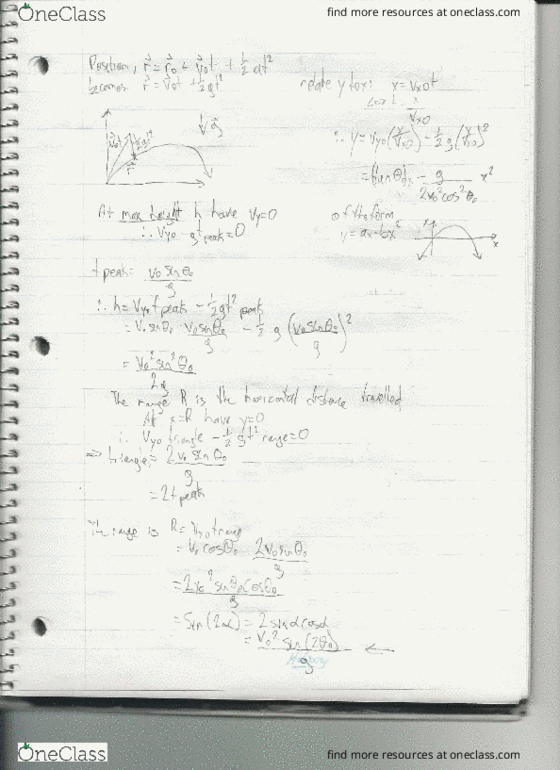 OneClass
find more resources at oneclass.com
Position, r⃗ = r⃗₀ + v⃗₀t + ½at²
becomes r⃗ = v⃗₀t + ½gt²
relate y to x: x = Vx₀t
∴ y = Vy₀(x/Vx₀) - ½g(x/Vx₀)²
= (tanθ₀)x - g/(2v₀²cos²θ₀) x²
At max height h have Vy=0
∴ Vy₀ - gt peak = 0
of the form
y = ax - bx²
x
t peak = v₀sinθ₀/g
∴ h = Vy₀t peak - ½gt² peak
= v₀sinθ₀ v₀sinθ₀/g - ½g(v₀sinθ₀/g)²
= v₀²sin²θ₀/2g
The range R is the horizontal distance travelled
At x=R have y=0
∴ Vy₀ - ½gt² range=0
⇒ = 2v₀sinθ₀/g
= 2t peak
The range is R =
= v₀cosθ₀ 2v₀sinθ₀/g
= 2v₀²sinθ₀cosθ₀/g
= Sin(2α) = 2sinαcosα
= v₀²sin(2θ₀)/g ←
OneClass
find more resources at oneclass.com